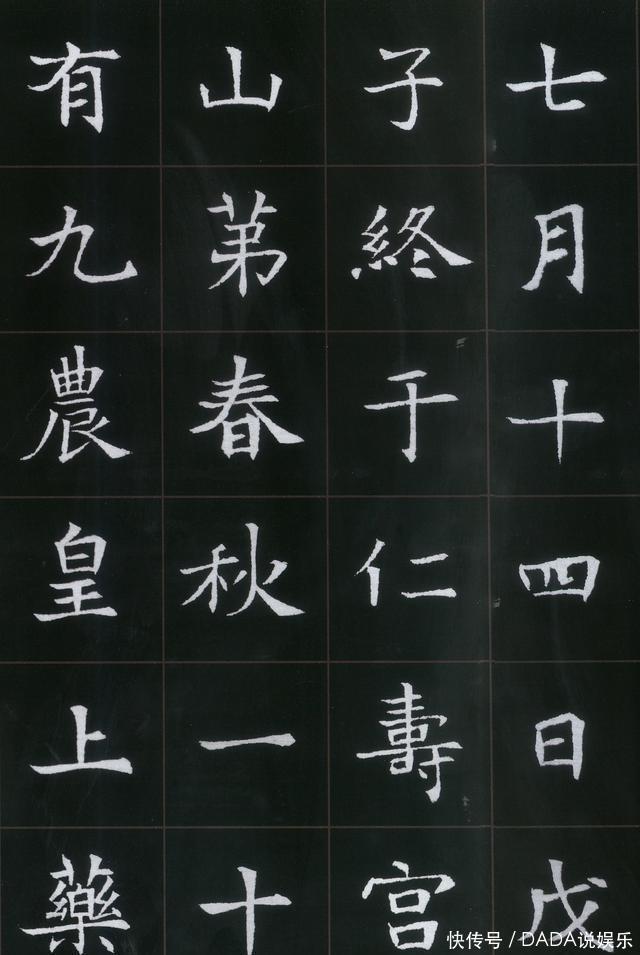 七月十四日戊
子終于仁壽宮
山苐春秋一十
有九農皇上藥
快传号／DADA说娱乐